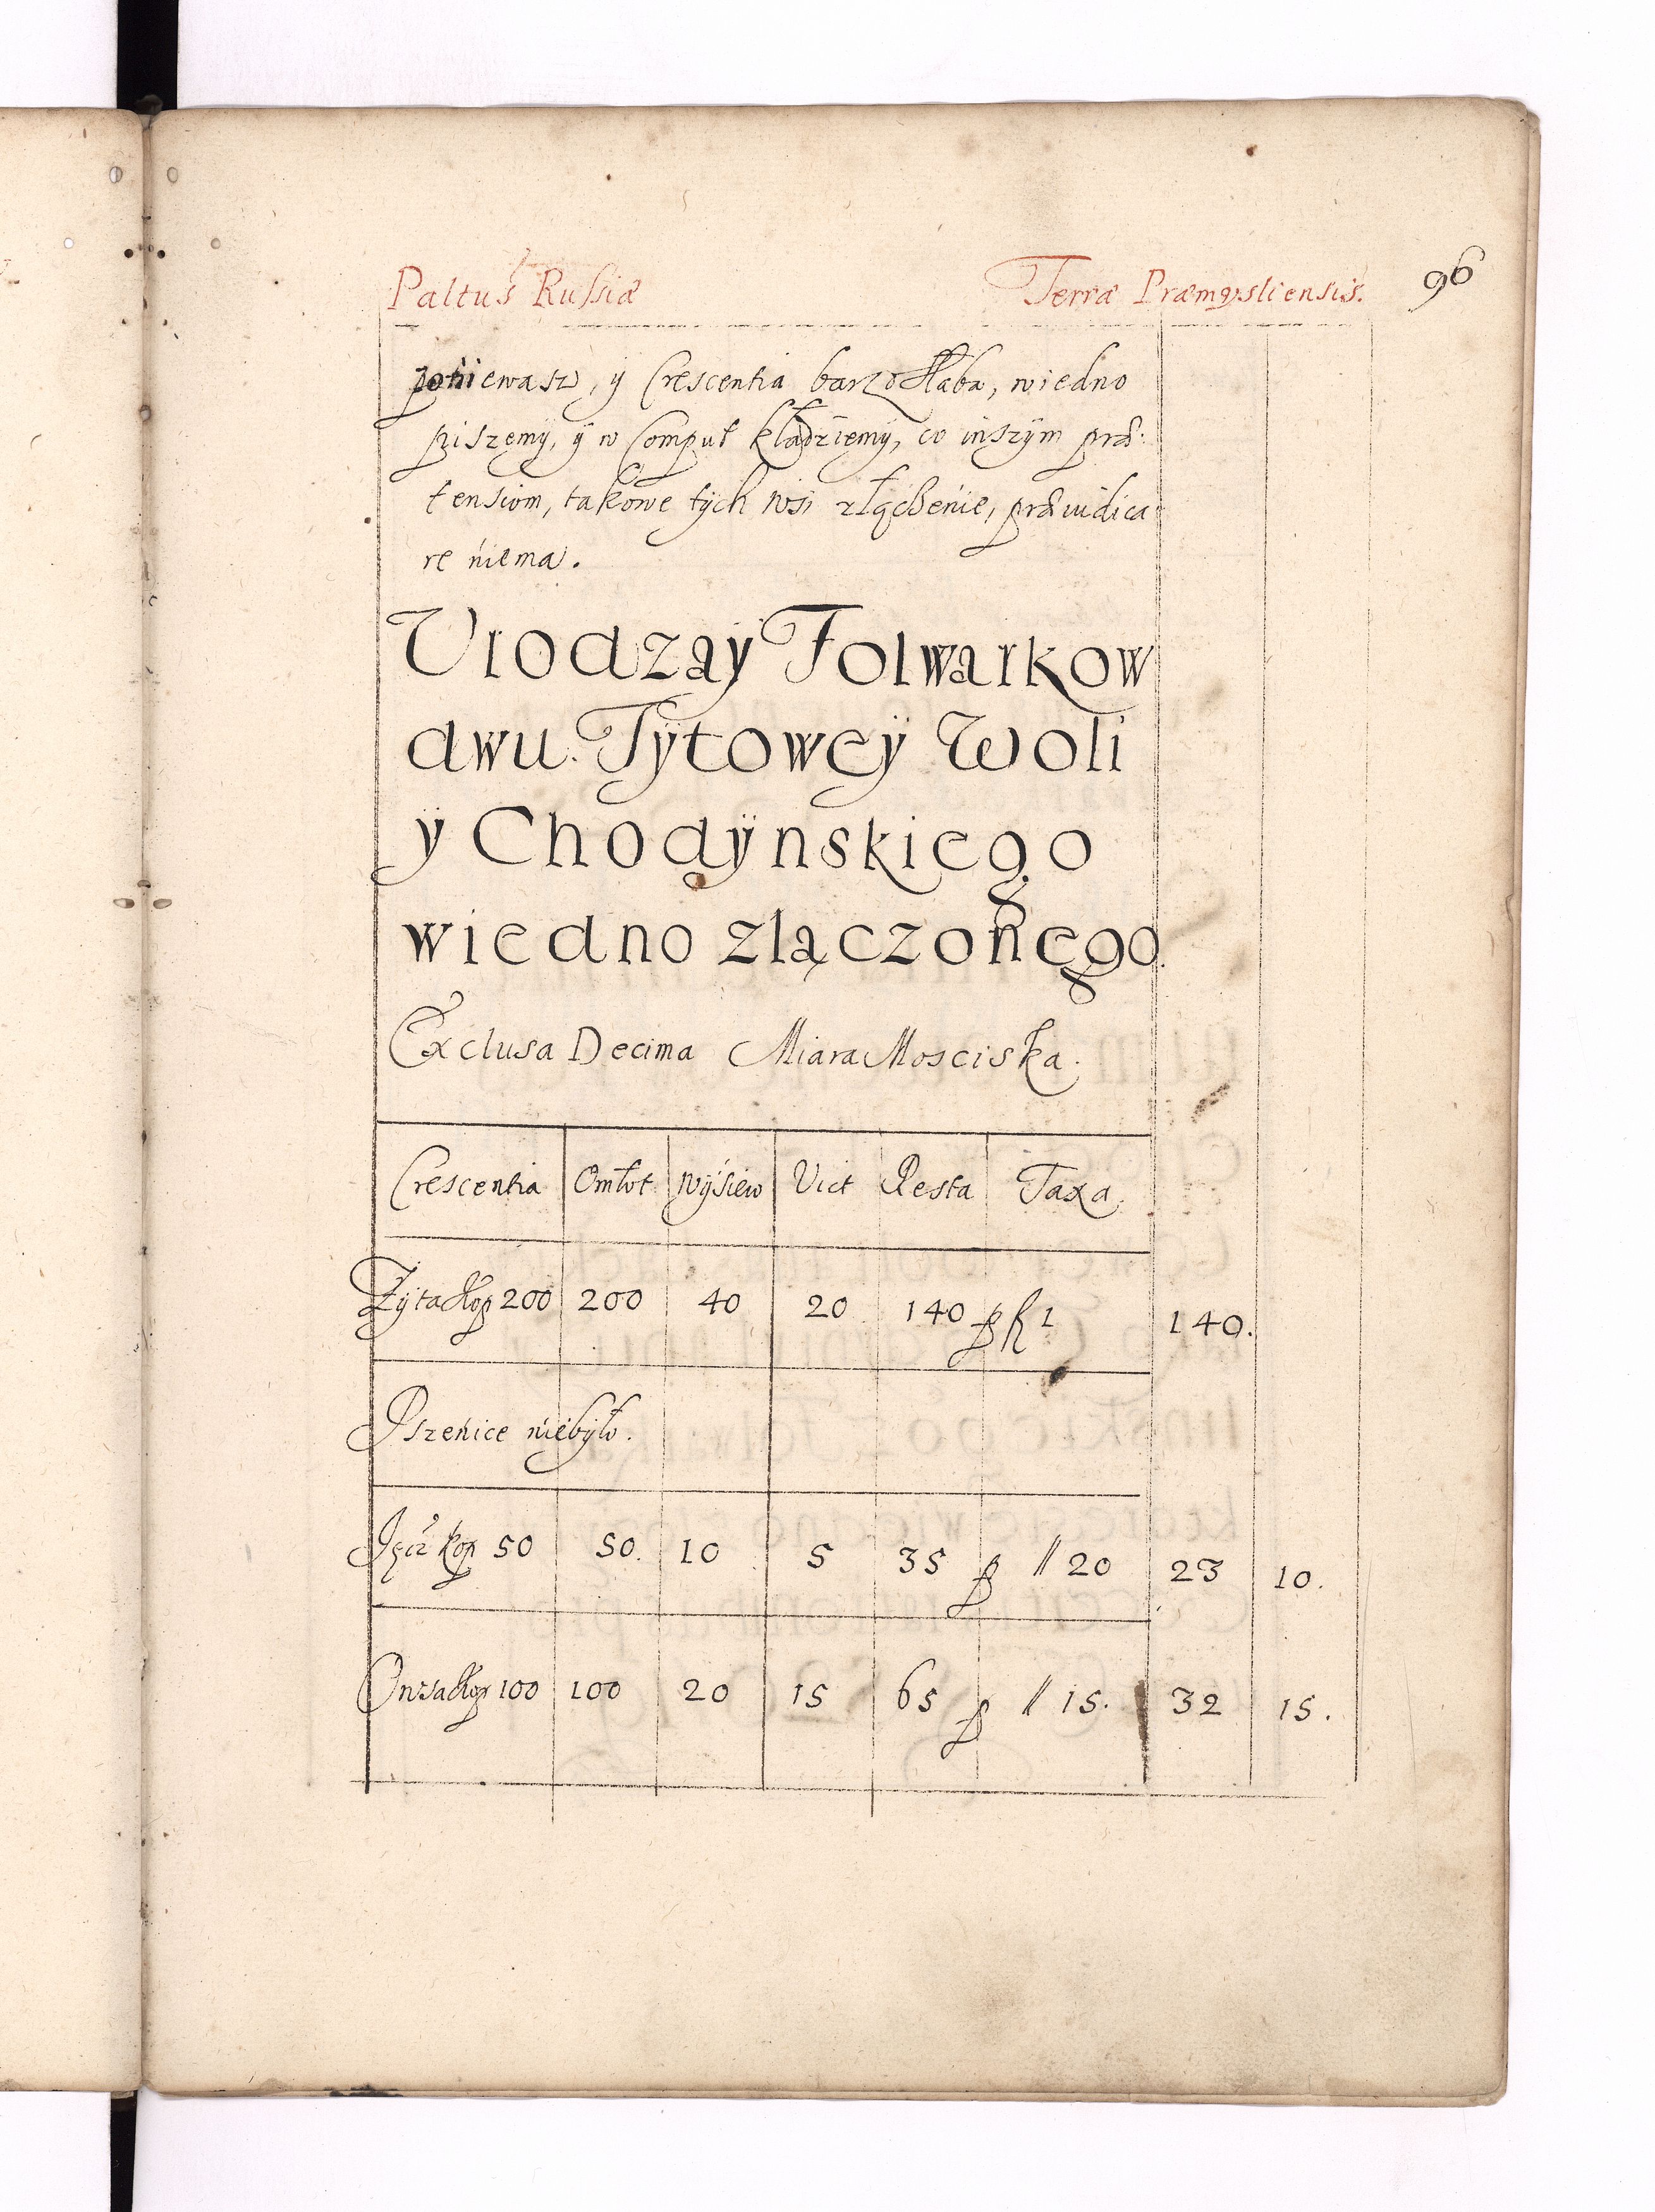 Paltus Russiæ Terræ Præmysliensis. 96
poniewasz, y Crescentia barzo słaba, wiedno
piszęmÿ, ÿ w Comput kładzięmÿ, co inszÿm præ-
tensiom, takowe tÿch wsi złączenie, præiudica
re niema.
Urodzaÿ Folwarkow
dwu. Tÿtoweÿ Woli
ÿ Chodÿnskiego
wiedno złączonego.
Exclusa Decima Miara Mosciska.
Crescentia Omłot Wÿsiew Vict Resta Taxa.
Zÿta kop 200 200 40 20 140 p fl 1 140.
Pszenice niebÿło.
Jęcz kop 50 50. 10 5 35 p // 20 23 10.
Owsa kop 100 100 20 15 65 p // 15. 32 15.